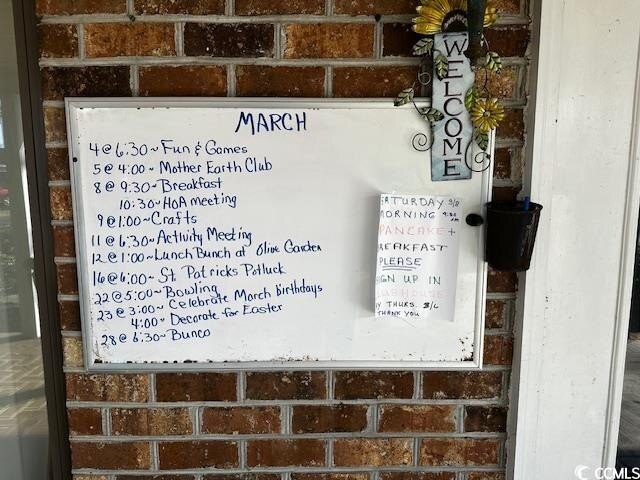 WELCOME
MARCH
4 @ 6:30 ~ Fun & Games
5 @ 4:00 ~ Mother Earth Club
8 @ 9:30 ~ Breakfast
10:30 ~ HOA meeting
9 @ 1:00 ~ Crafts
11 @ 6:30 ~ Activity Meeting
12 @ 1:00 ~ Lunch Bunch at Olive Garden
16 @ 6:00 ~ St. Patricks Potluck
22 @ 5:00 ~ Bowling
23 @ 3:00 ~ Celebrate March birthdays
4:00 ~ Decorate for Easter
28 @ 6:30 ~ Bunco
SATURDAY 3/8
MORNING 9:30
PANCAKE +
BREAKFAST
PLEASE
SIGN UP IN
BY THURS. 3/6
THANK YOU
CCMLS